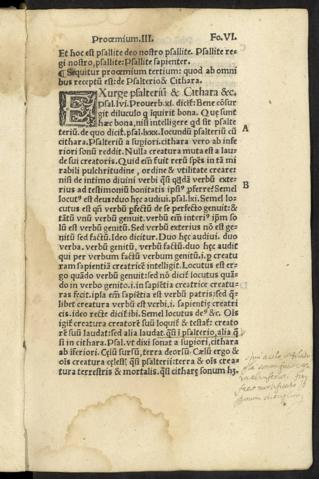 Prooemium.III. Fo.VI.
Et hoc est psallite deo nostro psallite. Psallite re
gi nostro, psallite: Psallite sapienter.
¶ Sequitur prooemium tertium: quod ab omni
bus receptũ est: de Psalterio & Cithara.
EXurge psalteriũ & Cithara &c.
psal.lvi. Prouerb.xi. dicit̃: Bene cõsur
git diluculo q̃ iquirit bona. Que sunt
hæc bona, nisi intelligere qd̃ sit psalte
teriũ, de quo dicit̃.psal.lxxx. Iocundũ psalteriũ cũ
cithara. Psalteriũ a supiori.cithara vero ab infe
riori sonũ reddit. Nulla creatura muta est a lau
de sui creatoris. Quid em̃ fuit rerũ spẽs in tã mi
rabili pulchritudine, ordine & vtilitate creare:
nisi de intimo diuini verbi
terius ad testimoniũ bonitatis ip̃s⁹ p̃ferre? Semel
locut⁹ est deus: duo hęc audiui. psal.lxi. Semel lo
cutus est qñ verbũ p̃fectũ de se perfecto genuit: &
tãtũ vnũ verbũ genuit. verbũ em̃ interi⁹ ip̃m so
lũ est verbũ genitũ. Sed verbũ exterius nõ est ge
nitũ sed factũ. Ideo dicitur. Duo hęc audiui. duo
verba. verbũ genitũ, verbũ factũ. duo hęc audit
qui per verbum factũ verbum genitũ.i.p creatu
ram sapientiã creatricẽ intelligit. Locutus est er
go quãdo verbũ genuit: sed nõ dicit̃ locutus quã
do in verbo genito.i.in sap̃ietia creatrice creatu
ras fecit.
libet creatura verbũ est verbi,i. sapientię creatri
cis. ideo recte dicit̃ ibi. Semel locutus de⁹ &c. Ois
igit̃ creatura creatorẽ suũ loquit̃ & testat̃: creato
rẽ suũ laudat: sed alia laudat. q̃si i psalterio, alia q̃
si in cithara. Psal.vt dixi sonat a supiori, cithara
ab iferiori. Celũ sursũ, terra deorsũ. Celũ ergo &
ois creatura celest̃ q̃si psalteriũ: terra & ois crea
tura terrestris & mortalis. q̃si citharę sonum hz.
A
B